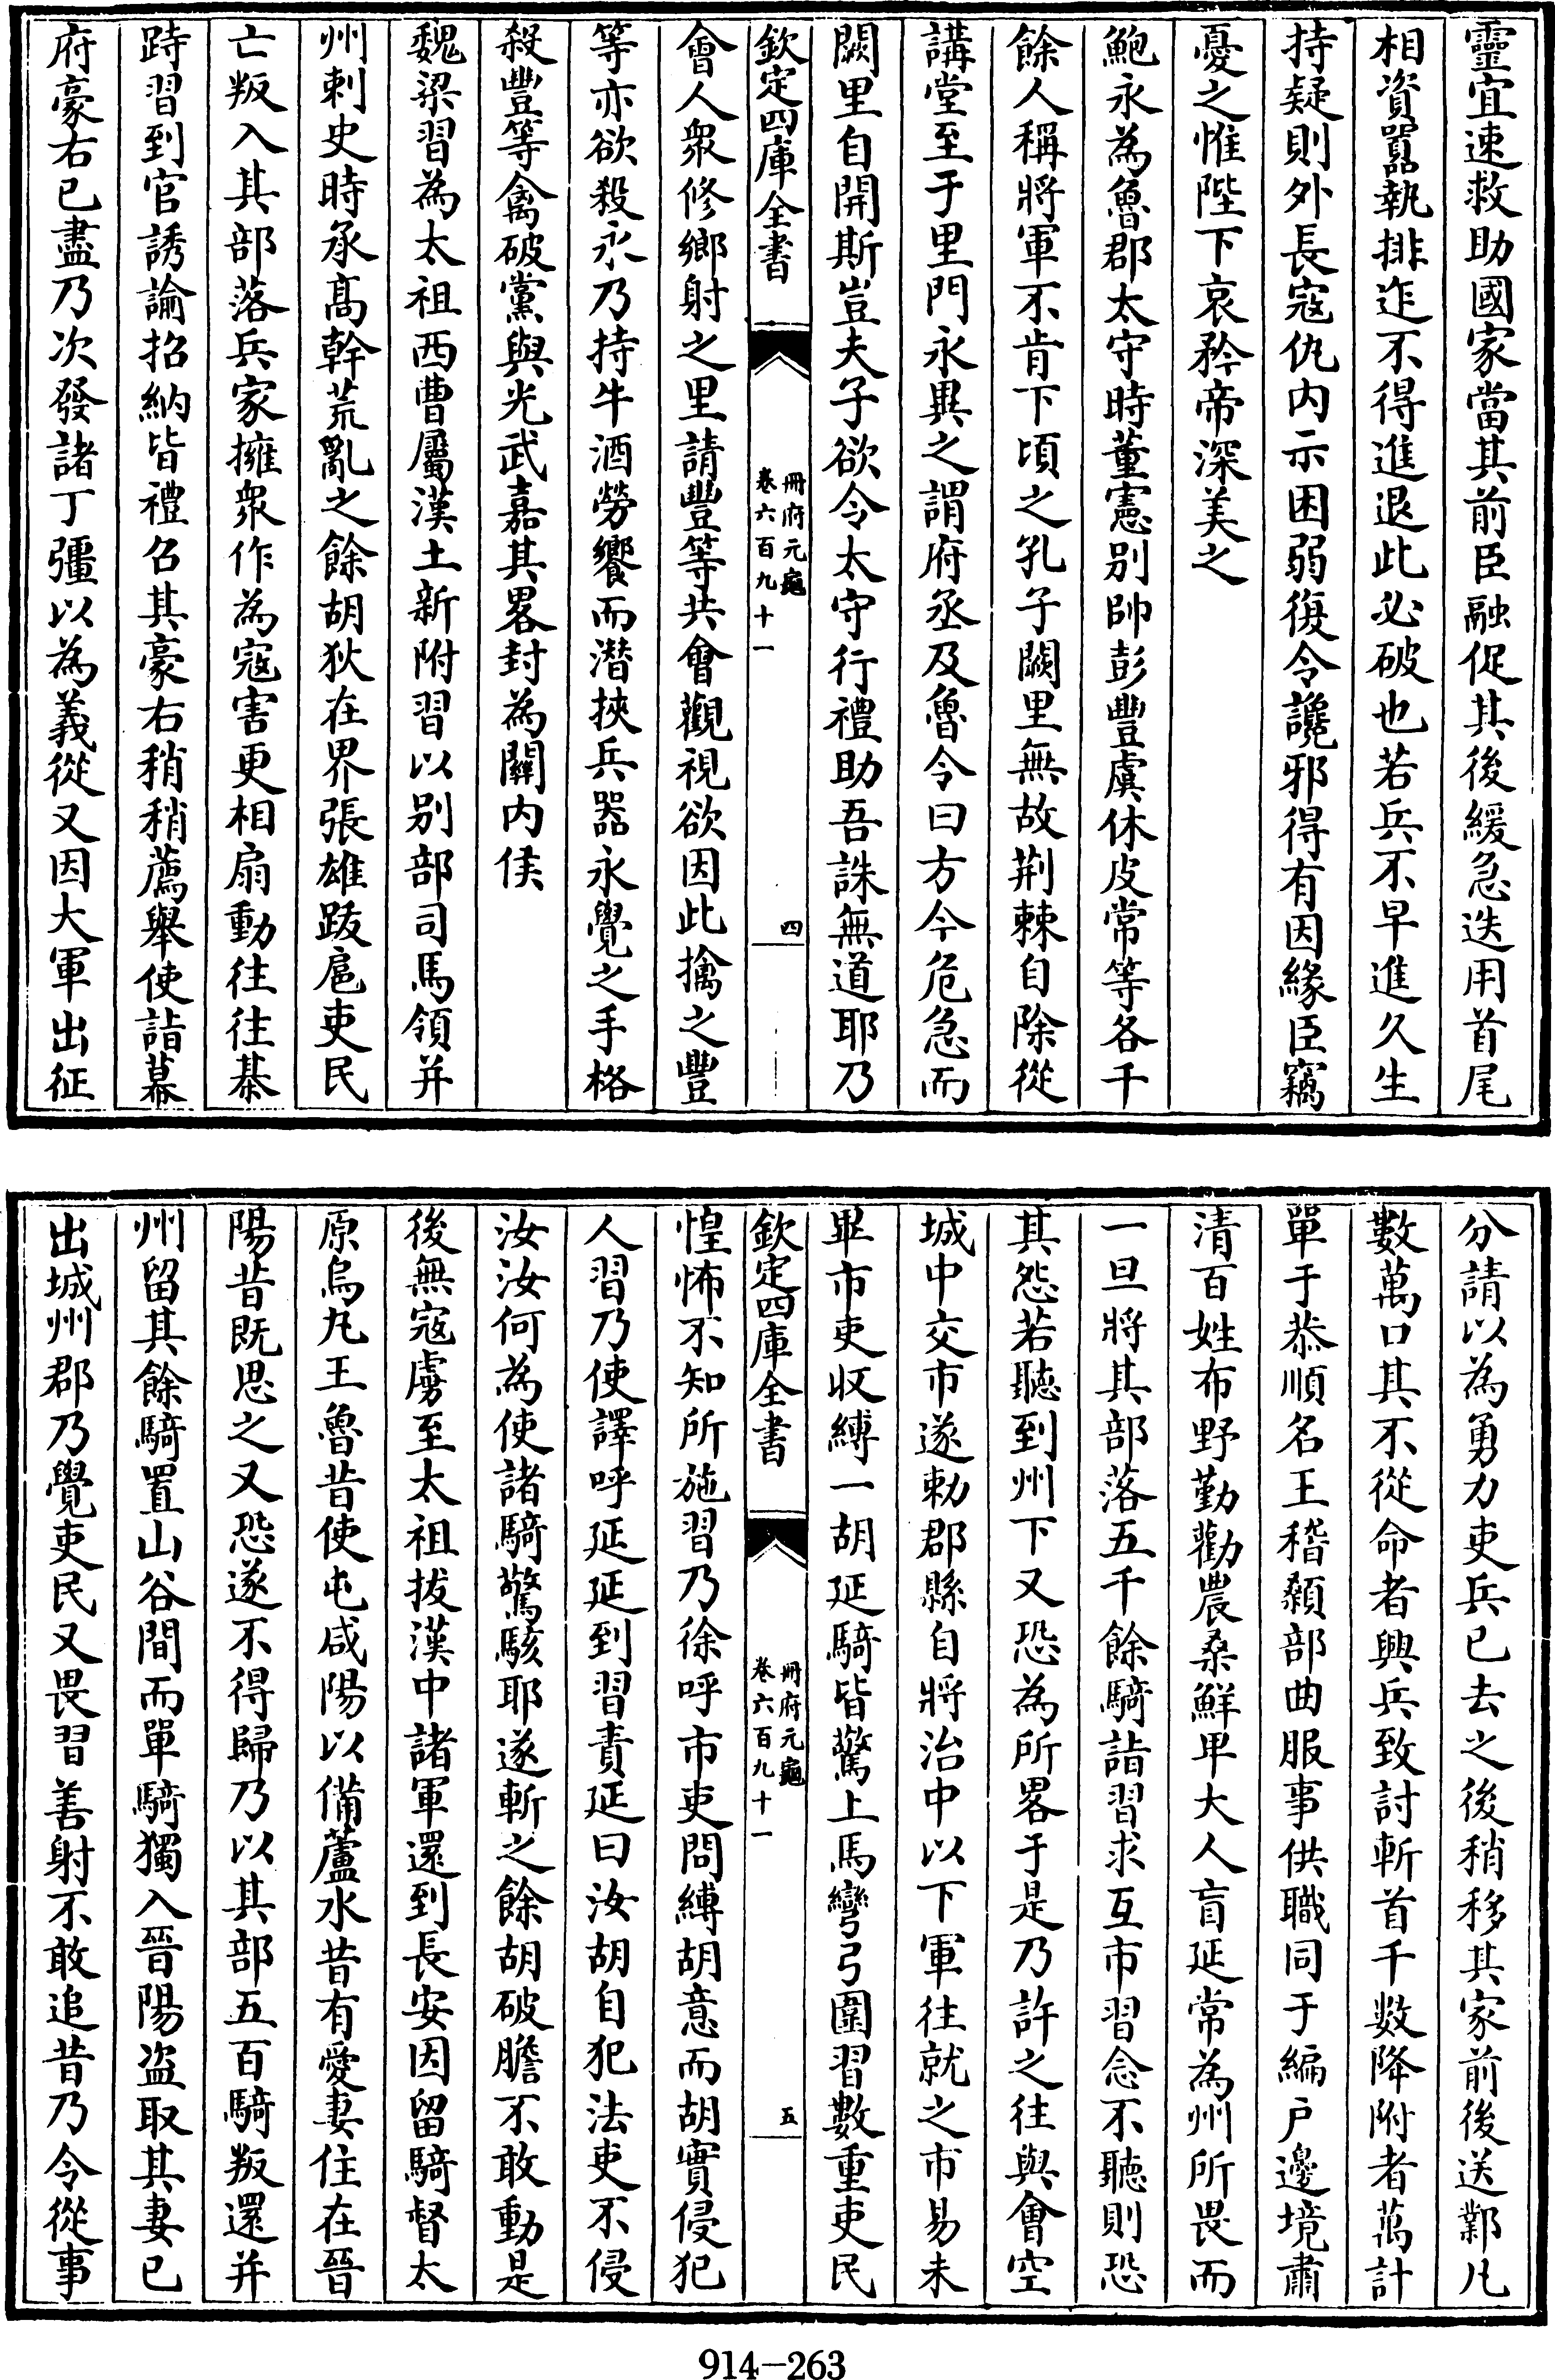 靈宜速救助國家當其前臣融促其後緩急迭用首尾
相資囂執排迮不得進退此必破也若兵不早進久生
持疑則外長寇仇内示困弱復令讒邪得有因緣臣竊
憂之惟陛下哀矜帝深美之
鮑永為魯郡太守時董憲别帥彭豐虞休皮常等各千
餘人稱將軍不肯下頃之孔子闕里無故荆棘自除從
講堂至于里門永異之謂府丞及魯令曰方今危急而
闕里自開斯豈夫子欲令太守行禮助吾誅無道耶乃
欽定四庫全書
冊府元龜
卷六百九十一
四
會人衆修鄉射之里請豐等共會觀視欲因此擒之豐
等亦欲殺永乃持牛酒勞饗而潛挾兵器永覺之手格
殺豐等禽破黨與光武嘉其畧封為關内侯
魏梁習為太祖西曹屬漢土新附習以别部司馬領并
州刺史時承髙幹荒亂之餘胡狄在界張雄跋扈吏民
亡叛入其部落兵家擁衆作為寇害更相扇動往往棊
跱習到官誘諭招納皆禮召其豪右稍稍薦舉使詣幕
府豪右已盡乃次發諸丁彊以為義從又因大軍出征
分請以為勇力吏兵已去之後稍移其家前後送鄴凡
數萬口其不從命者興兵致討斬首千數降附者萬計
單于恭順名王稽顙部曲服事供職同于編户邊境肅
清百姓布野勤勸農桑鮮卑大人育延常為州所畏而
一旦將其部落五千餘騎詣習求互市習念不聽則恐
其怨若聽到州下又恐為所畧于是乃許之往與會空
城中交市遂勅郡縣自將治中以下軍往就之市易未
畢市吏收縛一胡延騎皆驚上馬彎弓圍習數重吏民
欽定四庫全書
冊府元龜
卷六百九十一
五
惶怖不知所施習乃徐呼市吏問縛胡意而胡實侵犯
人習乃使譯呼延延到習責延曰汝胡自犯法吏不侵
汝汝何為使諸騎驚駭耶遂斬之餘胡破膽不敢動是
後無寇虜至太祖拔漢中諸軍還到長安因留騎督太
原烏丸王魯昔使屯咸陽以備蘆水昔有愛妻住在晉
陽昔既思之又恐遂不得歸乃以其部五百騎叛還并
州留其餘騎置山谷間而單騎獨入晉陽盜取其妻已
出城州郡乃覺吏民又畏習善射不敢追昔乃令從事
914-263